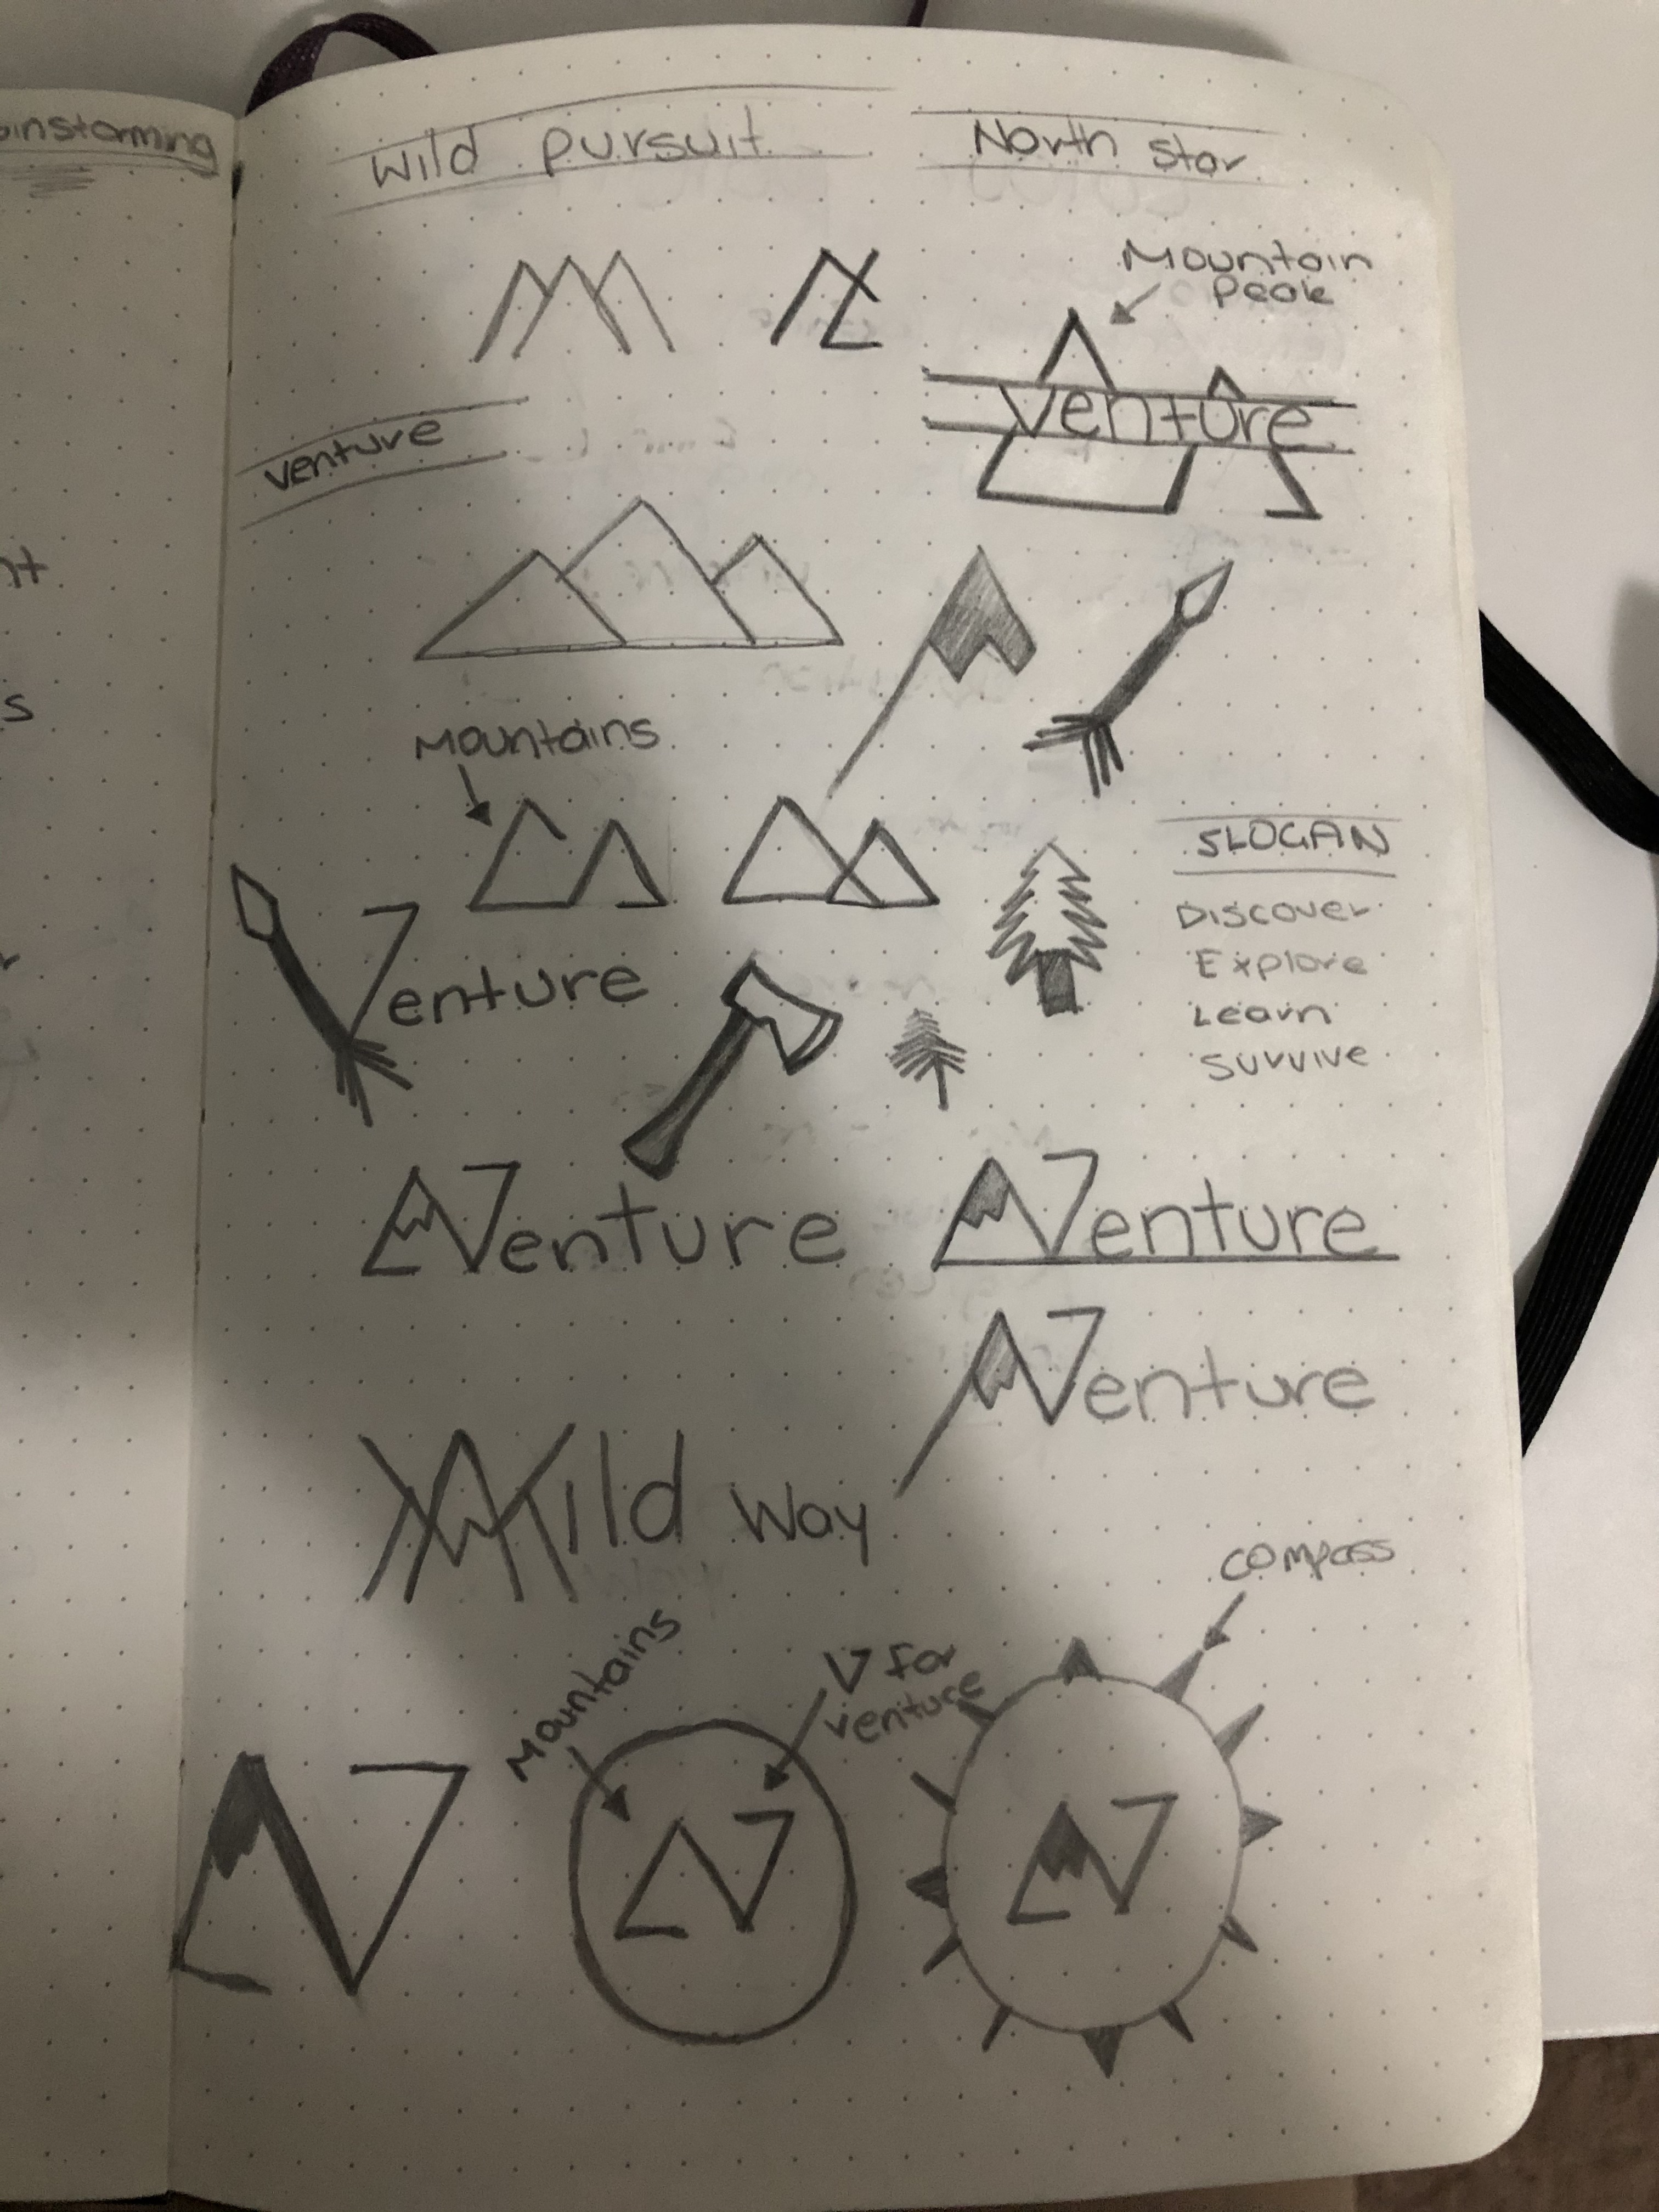 wild pursuit
North star
Mountain
Peak
venture
venture
Mountains
SLOGAN
Discover
Explore
Learn
Survive
Venture
Venture
Venture
Venture
Wild way
compass
Mountains
V for
venture